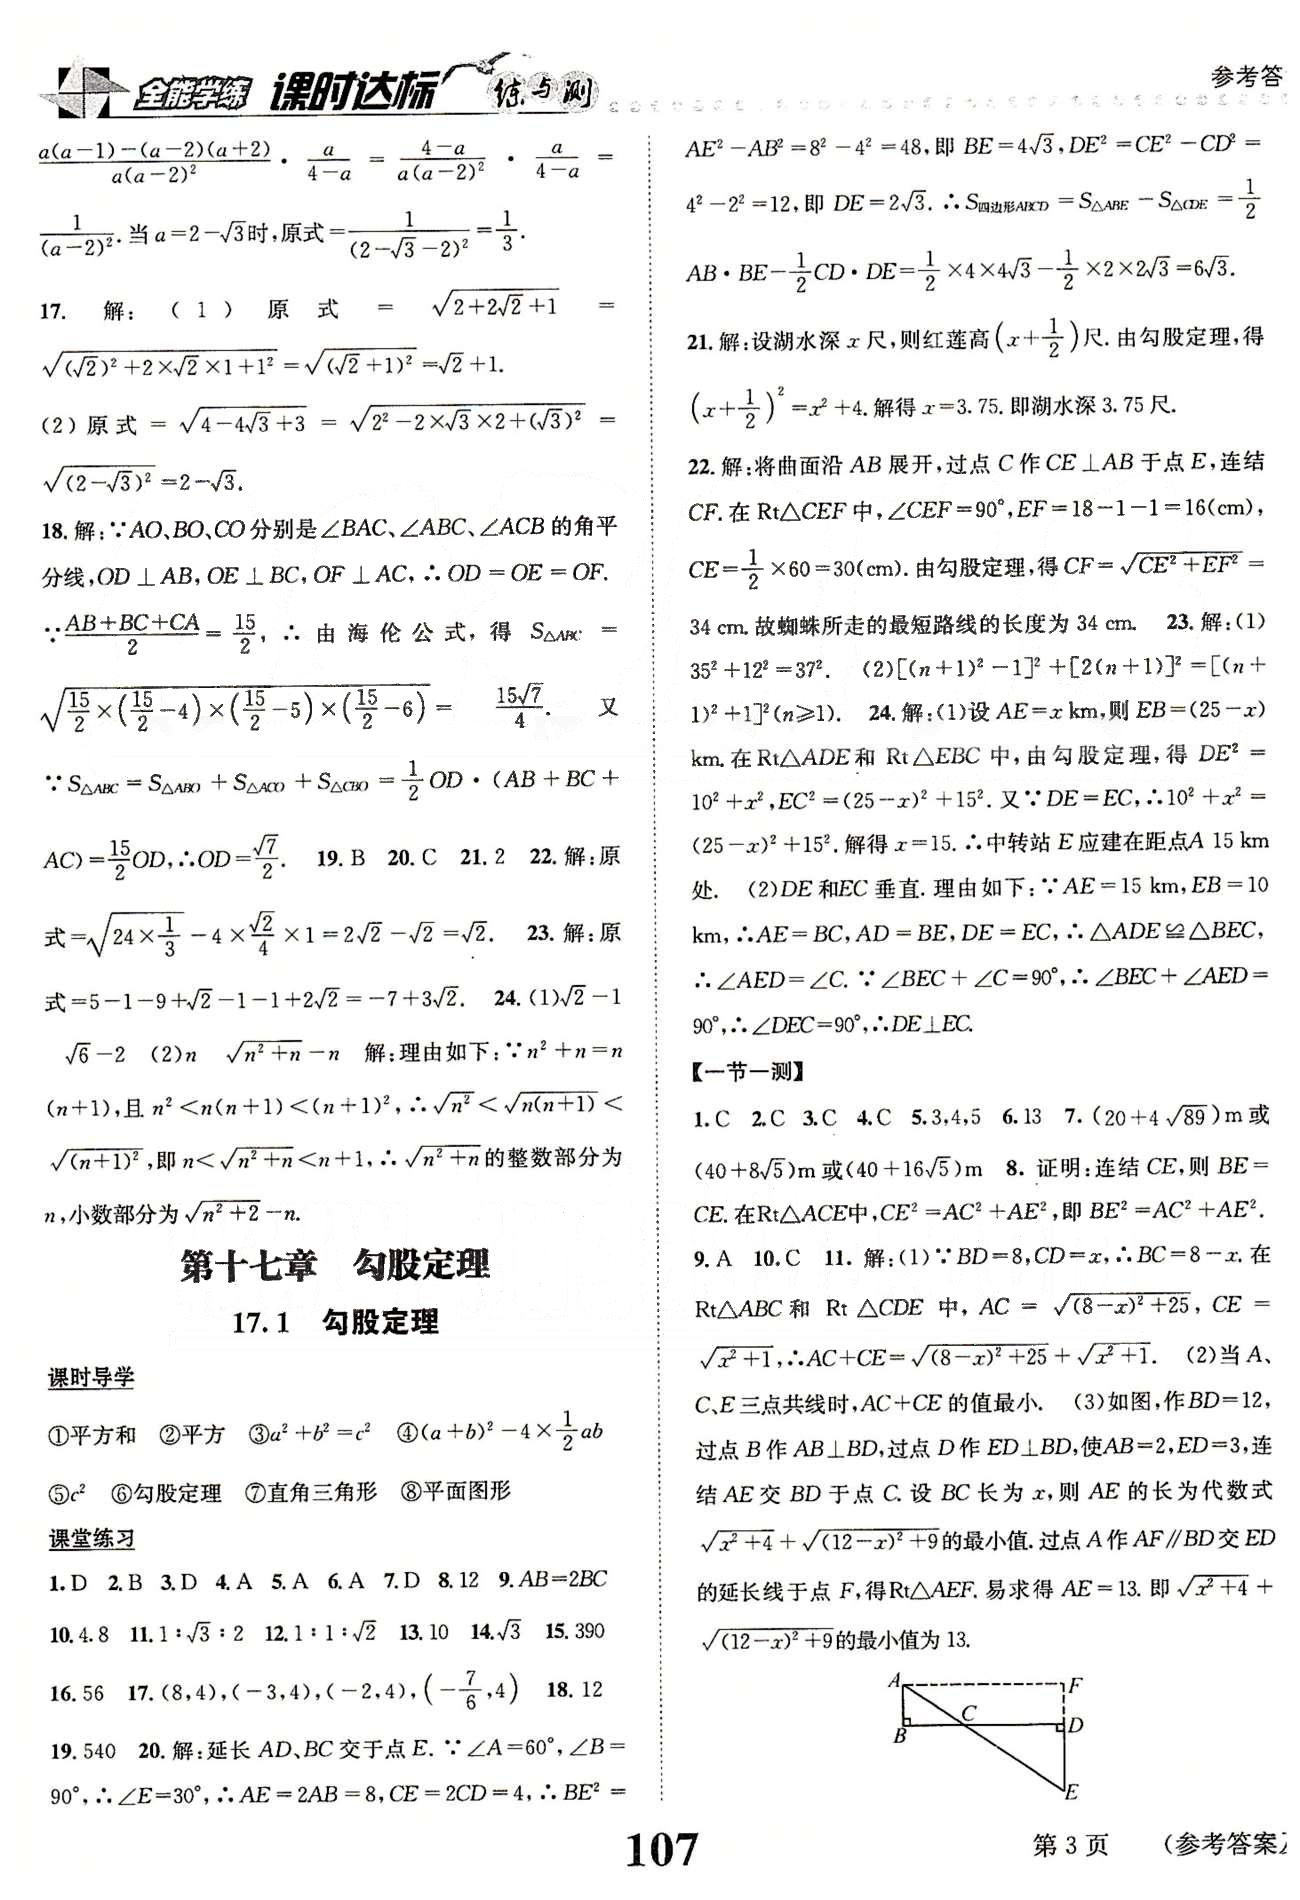 全能学练 课时达标 练与测
参考答
a(a-1)-(a-2)(a+2)/a(a-2)² · a/4-a = 4-a/a(a-2)² · a/4-a =
1/(a-2)². 当a=2-√3时,原式=1/(2-√3-2)²=1/3.
17. 解:(1)原式=√(2+2√2+1)=
√((√2)²+2×√2×1+1²)=√((√2+1)²)=√2+1.
(2)原式=√(4-4√3+3)=√(2²-2×√3×2+(√3)²)=
√((2-√3)²)=2-√3.
18. 解:∵AO、BO、CO分别是∠BAC、∠ABC、∠ACB的角平
分线,OD⊥AB,OE⊥BC,OF⊥AC,∴OD=OE=OF.
∵(AB+BC+CA)/2=15/2,∴由海伦公式,得S△ABC=
√(15/2×(15/2-4)×(15/2-5)×(15/2-6))=15√7/4. 又
∵S△ABC=S△ABO+S△ACO+S△CBO=1/2OD·(AB+BC+
AC)=15/2OD,∴OD=√7/2. 19. B 20. C 21. 2 22. 解:原
式=√(24×1/3)-4×√2/4×1=2√2-√2=√2. 23. 解:原
式=5-1-9+√2-1-1+2√2=-7+3√2. 24. (1)√2-1
√6-2 (2)n √(n²+n)-n 解:理由如下:∵n²+n=n
(n+1),且n²<n(n+1)<(n+1)²,∴√n²<√(n(n+1))<
√((n+1)²),即n<√(n²+n)<n+1,∴√(n²+n)的整数部分为
n,小数部分为√(n²+2)-n.
第十七章 勾股定理
17.1 勾股定理
课时导学
①平方和 ②平方 ③a²+b²=c² ④(a+b)²-4×1/2ab
⑤c² ⑥勾股定理 ⑦直角三角形 ⑧平面图形
课堂练习
1. D 2. B 3. D 4. A 5. A 6. A 7. D 8. 12 9. AB=2BC
10. 4.8 11. 1∶√3∶2 12. 1∶1∶√2 13. 10 14. √3 15. 390
16. 56 17. (8,4),(-3,4),(-2,4),(-7/6,4) 18. 12
19. 540 20. 解:延长AD、BC交于点E. ∵∠A=60°,∠B=
90°,∴∠E=30°,∴AE=2AB=8,CE=2CD=4,∴BE²=
AE²-AB²=8²-4²=48,即BE=4√3,DE²=CE²-CD²=
4²-2²=12,即DE=2√3. ∴S四边形ABCD=S△ABE-S△CDE=1/2
AB·BE-1/2CD·DE=1/2×4×4√3-1/2×2×2√3=6√3.
21. 解:设湖水深x尺,则红莲高(x+1/2)尺. 由勾股定理,得
(x+1/2)²=x²+4. 解得x=3.75. 即湖水深3.75尺.
22. 解:将曲面沿AB展开,过点C作CE⊥AB于点E,连结
CF. 在Rt△CEF中,∠CEF=90°,EF=18-1-1=16(cm),
CE=1/2×60=30(cm). 由勾股定理,得CF=√(CE²+EF²)=
34 cm. 故蜘蛛所走的最短路线的长度为34 cm. 23. 解:(1)
35²+12²=37². (2)[(n+1)²-1]²+[2(n+1)]²=[(n+
1)²+1]²(n≥1). 24. 解:(1)设AE=x km,则EB=(25-x)
km. 在Rt△ADE和Rt△EBC中,由勾股定理,得DE²=
10²+x²,EC²=(25-x)²+15². 又∵DE=EC,∴10²+x²=
(25-x)²+15². 解得x=15. ∴中转站E应建在距点A 15 km
处. (2)DE和EC垂直. 理由如下:∵AE=15 km,EB=10
km,∴AE=BC,AD=BE,DE=EC,∴△ADE≌△BEC,
∴∠AED=∠C. ∵∠BEC+∠C=90°,∴∠BEC+∠AED=
90°,∴∠DEC=90°,∴DE⊥EC.
【一节一测】
1. C 2. C 3. C 4. C 5. 3,4,5 6. 13 7. (20+4√89)m或
(40+8√5)m或(40+16√5)m 8. 证明:连结CE,则BE=
CE. 在Rt△ACE中,CE²=AC²+AE²,即BE²=AC²+AE².
9. A 10. C 11. 解:(1)∵BD=8,CD=x,∴BC=8-x. 在
Rt△ABC和Rt△CDE中,AC=√((8-x)²+25),CE=
√(x²+1),∴AC+CE=√((8-x)²+25)+√(x²+1). (2)当A、
C、E三点共线时,AC+CE的值最小. (3)如图,作BD=12,
过点B作AB⊥BD,过点D作ED⊥BD,使AB=2,ED=3,连
结AE交BD于点C. 设BC长为x,则AE的长为代数式
√(x²+4)+√((12-x)²+9)的最小值. 过点A作AF∥BD交ED
的延长线于点F,得Rt△AEF. 易求得AE=13. 即√(x²+4)+
√((12-x)²+9)的最小值为13.
A F
C
B D
E
107
第3页 (参考答案